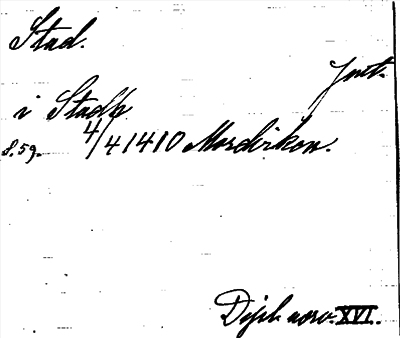 Stad.
Jmt.
i Stadh
s. 59. 4/4 1410 Mordvikom.
Dipl. norv. XVI.